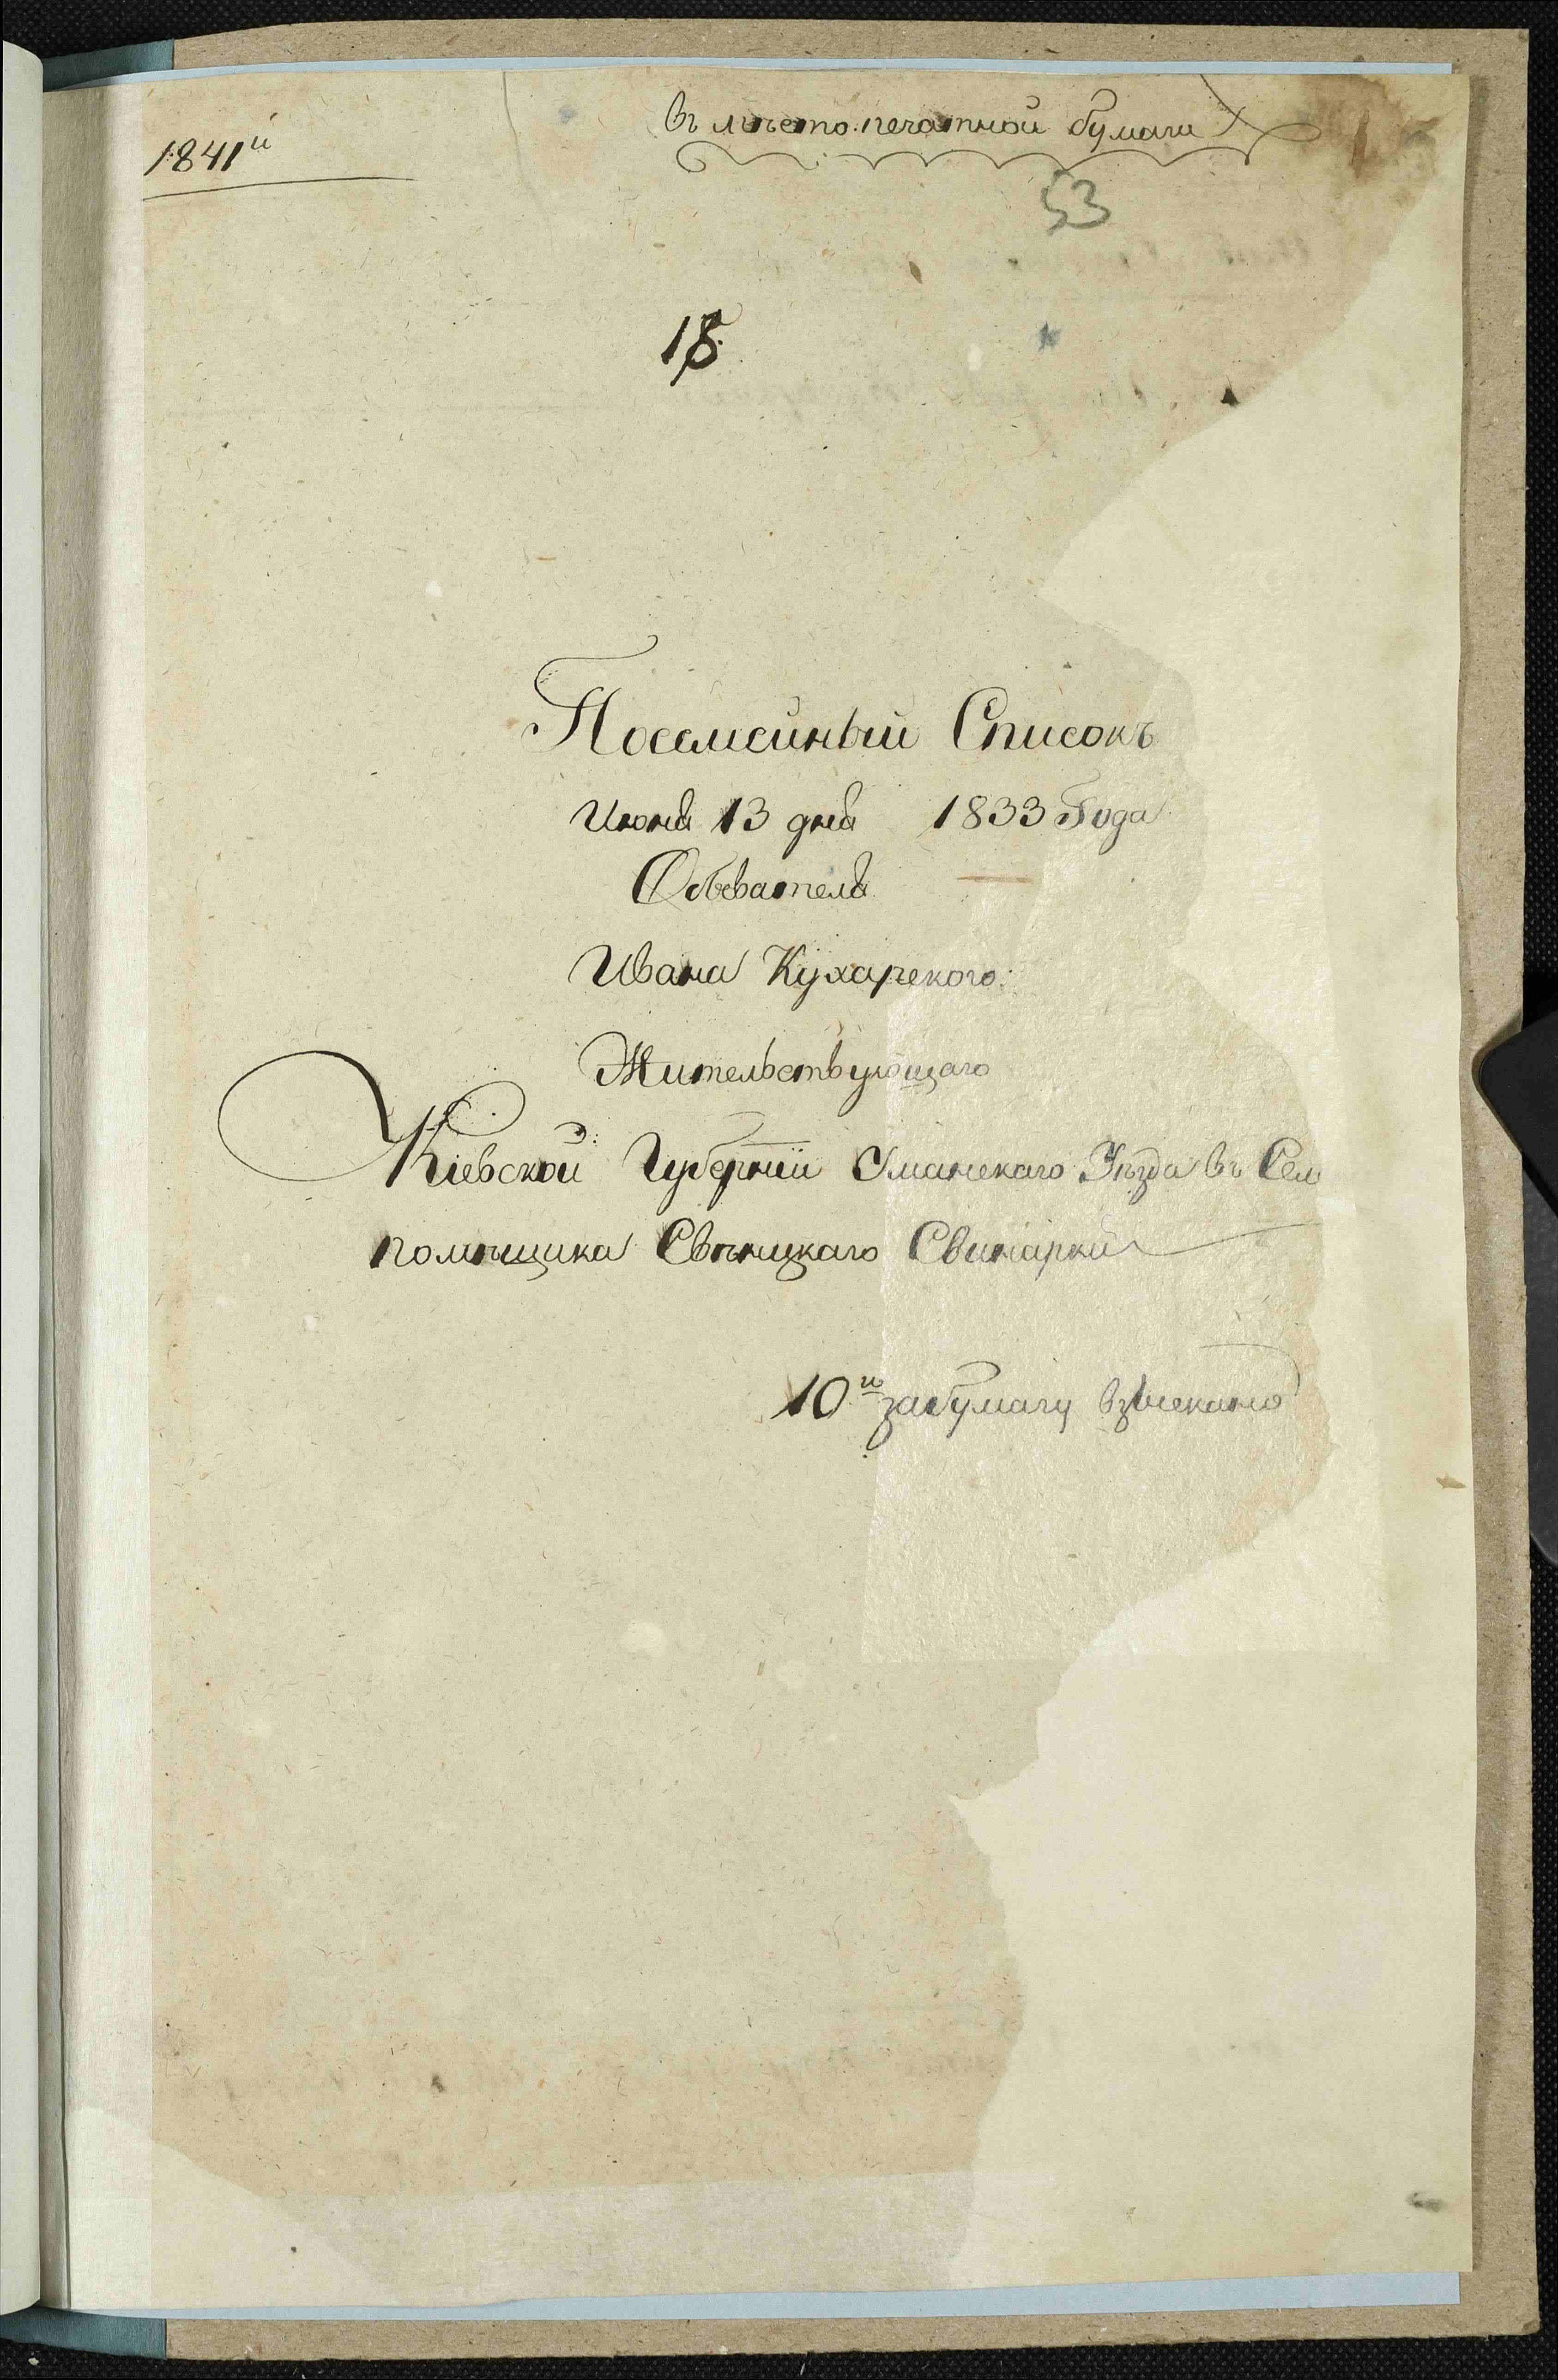 въ мѣсто печатной бумаги
1841й
53
18
Посемейный Списокъ
Июня 13 дня 1833 Года
Обывателя
Ивана Кухарского
Жительствующаго
Кіевской Губерніи Уманскаго Уѣзда въ Сел
помѣщика Свѣницкаго Свинарки
10й за бумагу взыскано